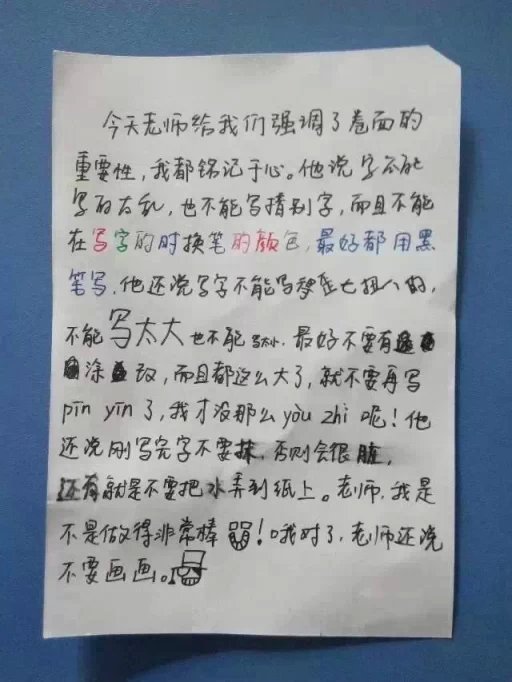 今天老师给我们强调了卷面的
重要性，我都铭记于心。他说字不能
写的太乱，也不能写措别字，而且不能
在写字的时换笔的颜色，最好都用黑
笔写，他还说写字不能写歪七扭八的，
不能写太大也不能写太小，最好不要有
涂改，而且都这么大了，就不要再写
pīn yīn了，我才没那么yòu zhi呢！他
还说刚写完字不要抹，否则会很脏，
还有就是不要把水弄到纸上。老师，我是
不是做得非常棒！哦对了，老师还说
不要画画。